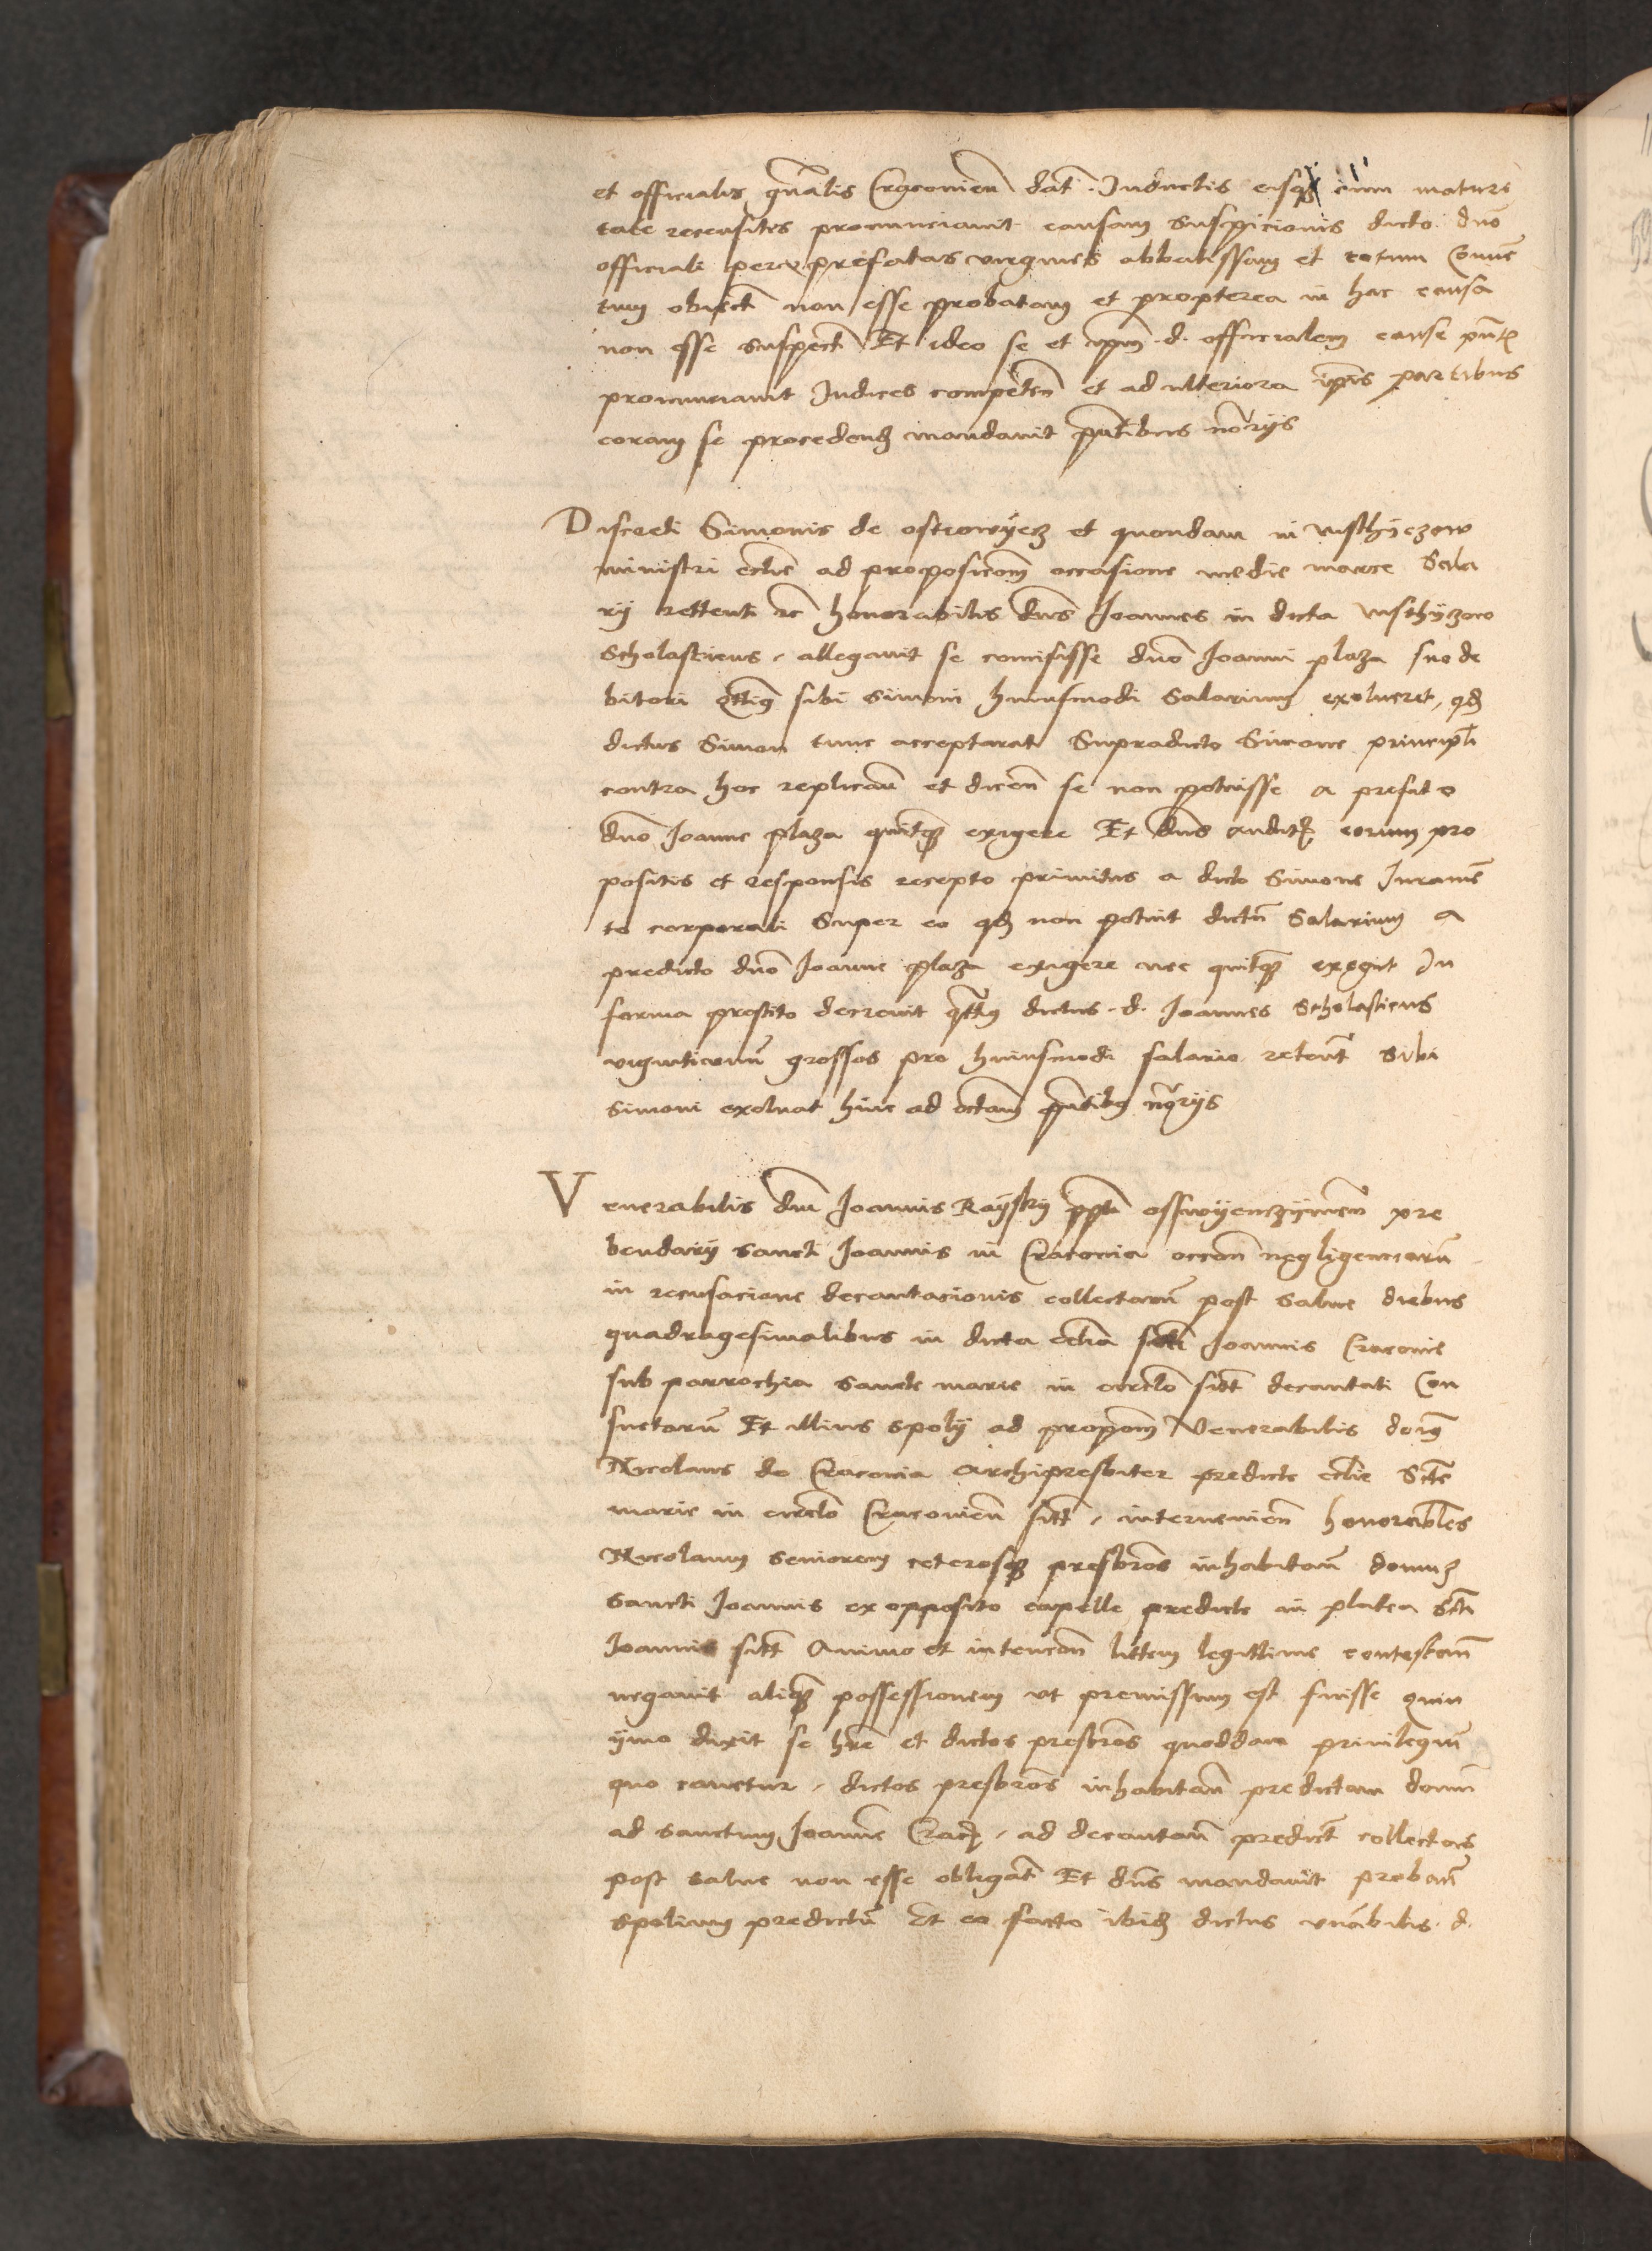 et officialis gnalis Cracovien dat. Inductis eisq cum mature
tate recensitis pronunciavit causam suspicionis dicto dno
officiali per prefatas virgines abbatissam et totum Conven
tum obiect non esse probatam et propterea in hac causa
non esse suspect Et ideo se et ipm d. officialem cause pnt
pronunciavit Iudices competen et ad ulteriora ipis partibus
coram se procedend mandavit pntibus notrijs
Discreti Simonis de ostrowyecz et quondam in
ministri ecclie ad proposicom occasione medie marce Sala
rij rettenti rc honorabilis dns Joannes in dicta
Scholasticus, allegavit se comisisse dno Joanni plaza suo de
bitori qttus sibi Simoni huiusmodi Salarium exolveret, qd
dictus Simon tunc acceptarat Supradicto Simone principli
contra hoc replican et dicen se non potuisse a prefato
dno Joanne plaza quitq exigere Et dns auditis eorum pro
positis et responsis recepto primitus a dicto Simone Iuramen
to corporali Super eo qd non potuit dictu Salarium a
predicto dno Joanne plaza exigere nec quitq exegit In
forma prestito decrevit qttus dictus d. Joannes Scholasticus
viginticum grossos pro huiusmodi salario retent sibi
Simoni exolvat hinc ad octam pntibus notrijs
Venerabilis dni Joannis Raysky ppti osswyenczymen pre
bendarij sancti Joannis in Cracovia occom negligenciaru
in recusacione decantacionis collectarum post salve diebus
quadragesimalibus in dicta ecclia scti Joannis Cracovie
sub parrochia sancte marie in circlo sitt decantati Con
suetaru Et illius spolij ad propom Venerabilis doms
Nicolaus de Cracovia Archipresbiter predicte ecclie Scte
marie in circlo Cracovien sitt, intervenien honorabiles
Nicolaum seniorem ceterosq presbros inhabitan domus
sancti Joannis ex opposito capelle predicte in platea scti
Joannis sitt Animo et intencon littem legittime contestan
negavit aliqm possessionem ut premissum est fuisse quin
ymo dixit se hre et dictos presbros quoddam privilegium
quo cavetur, dictos presbros inhabitan predictam domu
ad sanctum Joanne Crac, ad decantan predict collectas
post salve non esse obligat Et dns mandavit probari
spolium predictu Et eo facto ibid dictus vnabilis d.